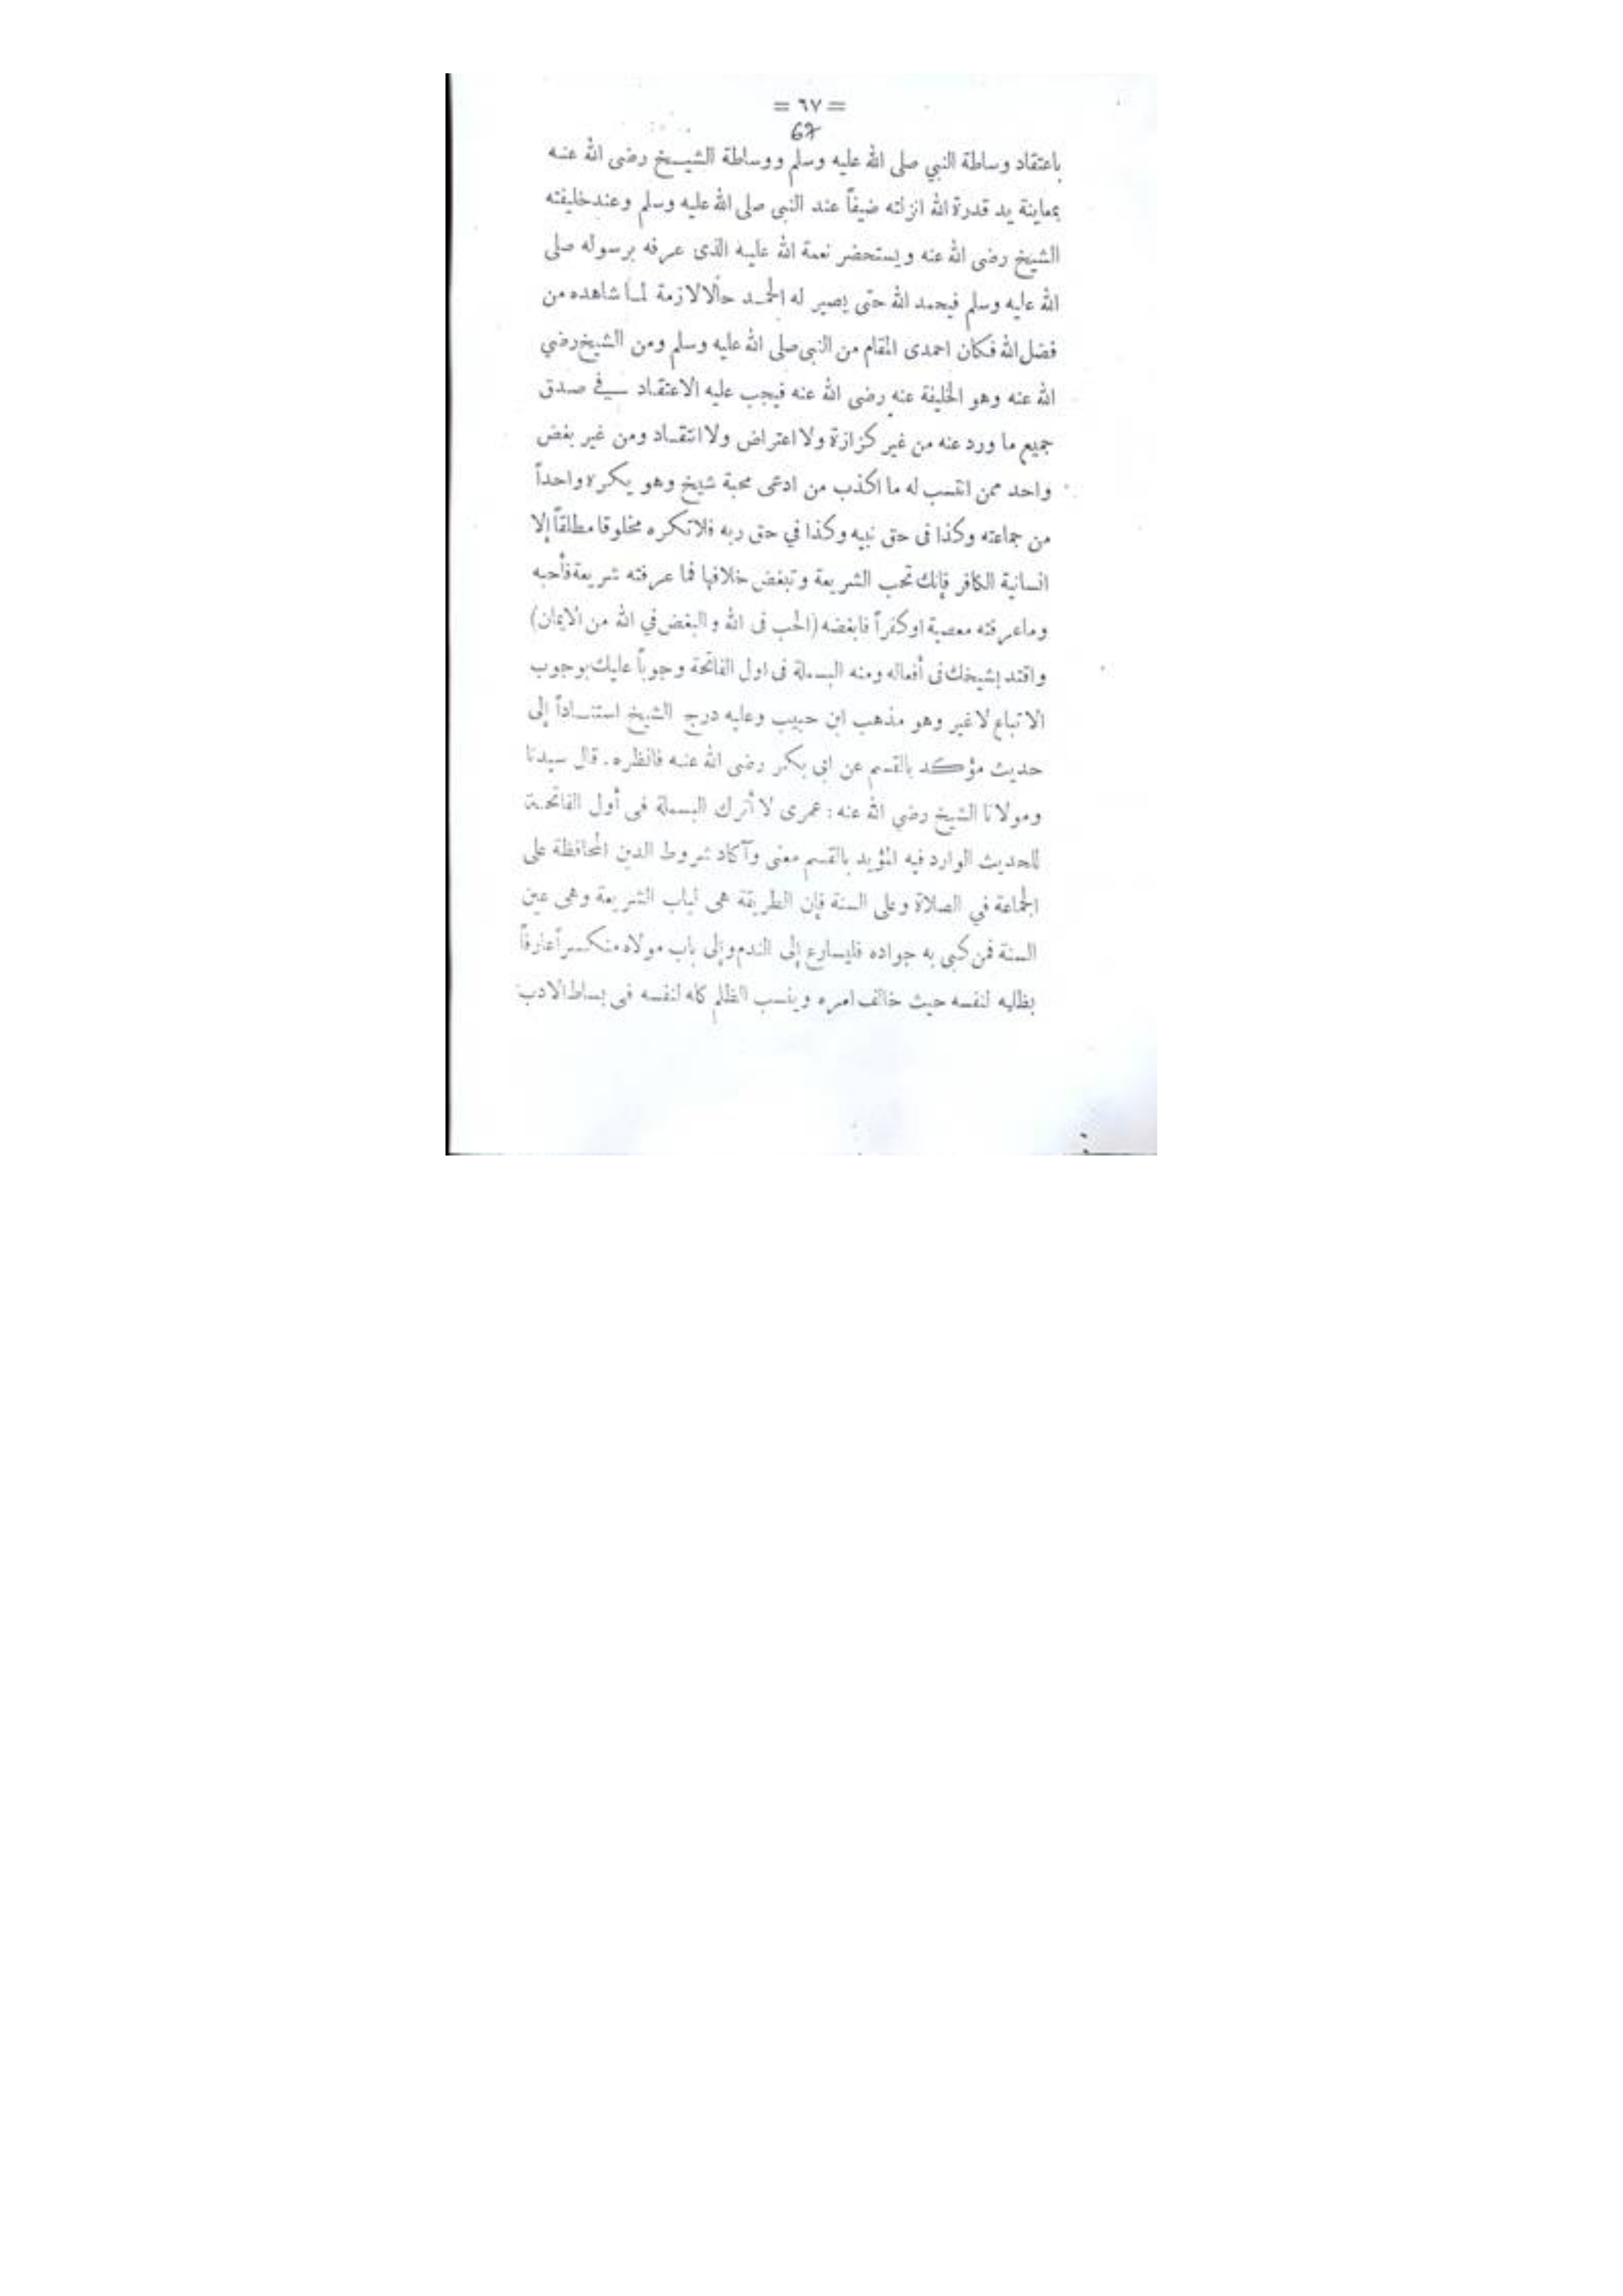 = ٦٧ =
67
باعتقاد وساطة النبي صلى الله عليه وسلم ووساطة الشيخ رضى الله عنه
بمعاينة يد قدرة الله انزلته ضيفاً عند النبى صلى الله عليه وسلم وعند خليفته
الشيخ رضى الله عنه ويستحضر نعمة الله عليه الذى عرفه برسوله صلى
الله عليه وسلم فيحمد الله حتى يصير له الحمد حالا لازمة لما شاهده من
فضل الله فكان احمدى المقام من النبى صلى الله عليه وسلم ومن الشيخ رضي
الله عنه وهو الخليفة عنه رضى الله عنه فيجب عليه الاعتقاد في صدق
جميع ما ورد عنه من غير كزازة ولا اعتراض ولا انتقاد ومن غير بغض
واحد ممن انتسب له ما اكذب من ادعى محبة شيخ وهو يكره واحداً
من جماعته وكذا فى حق نبيه وكذا في حق ربه فلا تكره مخلوقا مطلقاً إلا
انسانية الكافر فإنك تحب الشريعة وتبغض خلافها فما عرفته شريعة فأحبه
وما عرفته معصية او كفراً فابغضه (الحب فى الله والبغض في الله من الايمان)
واقتد بشيخك فى أفعاله ومنه البسملة فى اول الفاتحة وجوباً عليك بوجوب
الاتباع لا غير وهو مذهب ابن حبيب وعليه درج الشيخ استناداً إلى
حديث مؤكد بالقسم عن ابى بكر رضى الله عنه فانظره . قال سيدنا
ومولانا الشيخ رضي الله عنه : عمرى لا أترك البسملة فى أول الفاتحة
للحديث الوارد فيه المؤيد بالقسم معنى وآكاد شروط الدين المحافظة على
الجماعة في الصلاة وعلى السنة فإن الطريقة هى لباب الشريعة وهى عين
السنة فمن كبى به جواده فليسارع إلى الندم وإلى باب مولاه منكسراً عارفاً
بظلمه لنفسه حيث خالف امره وينسب الظلم كله لنفسه فى بساط الادب